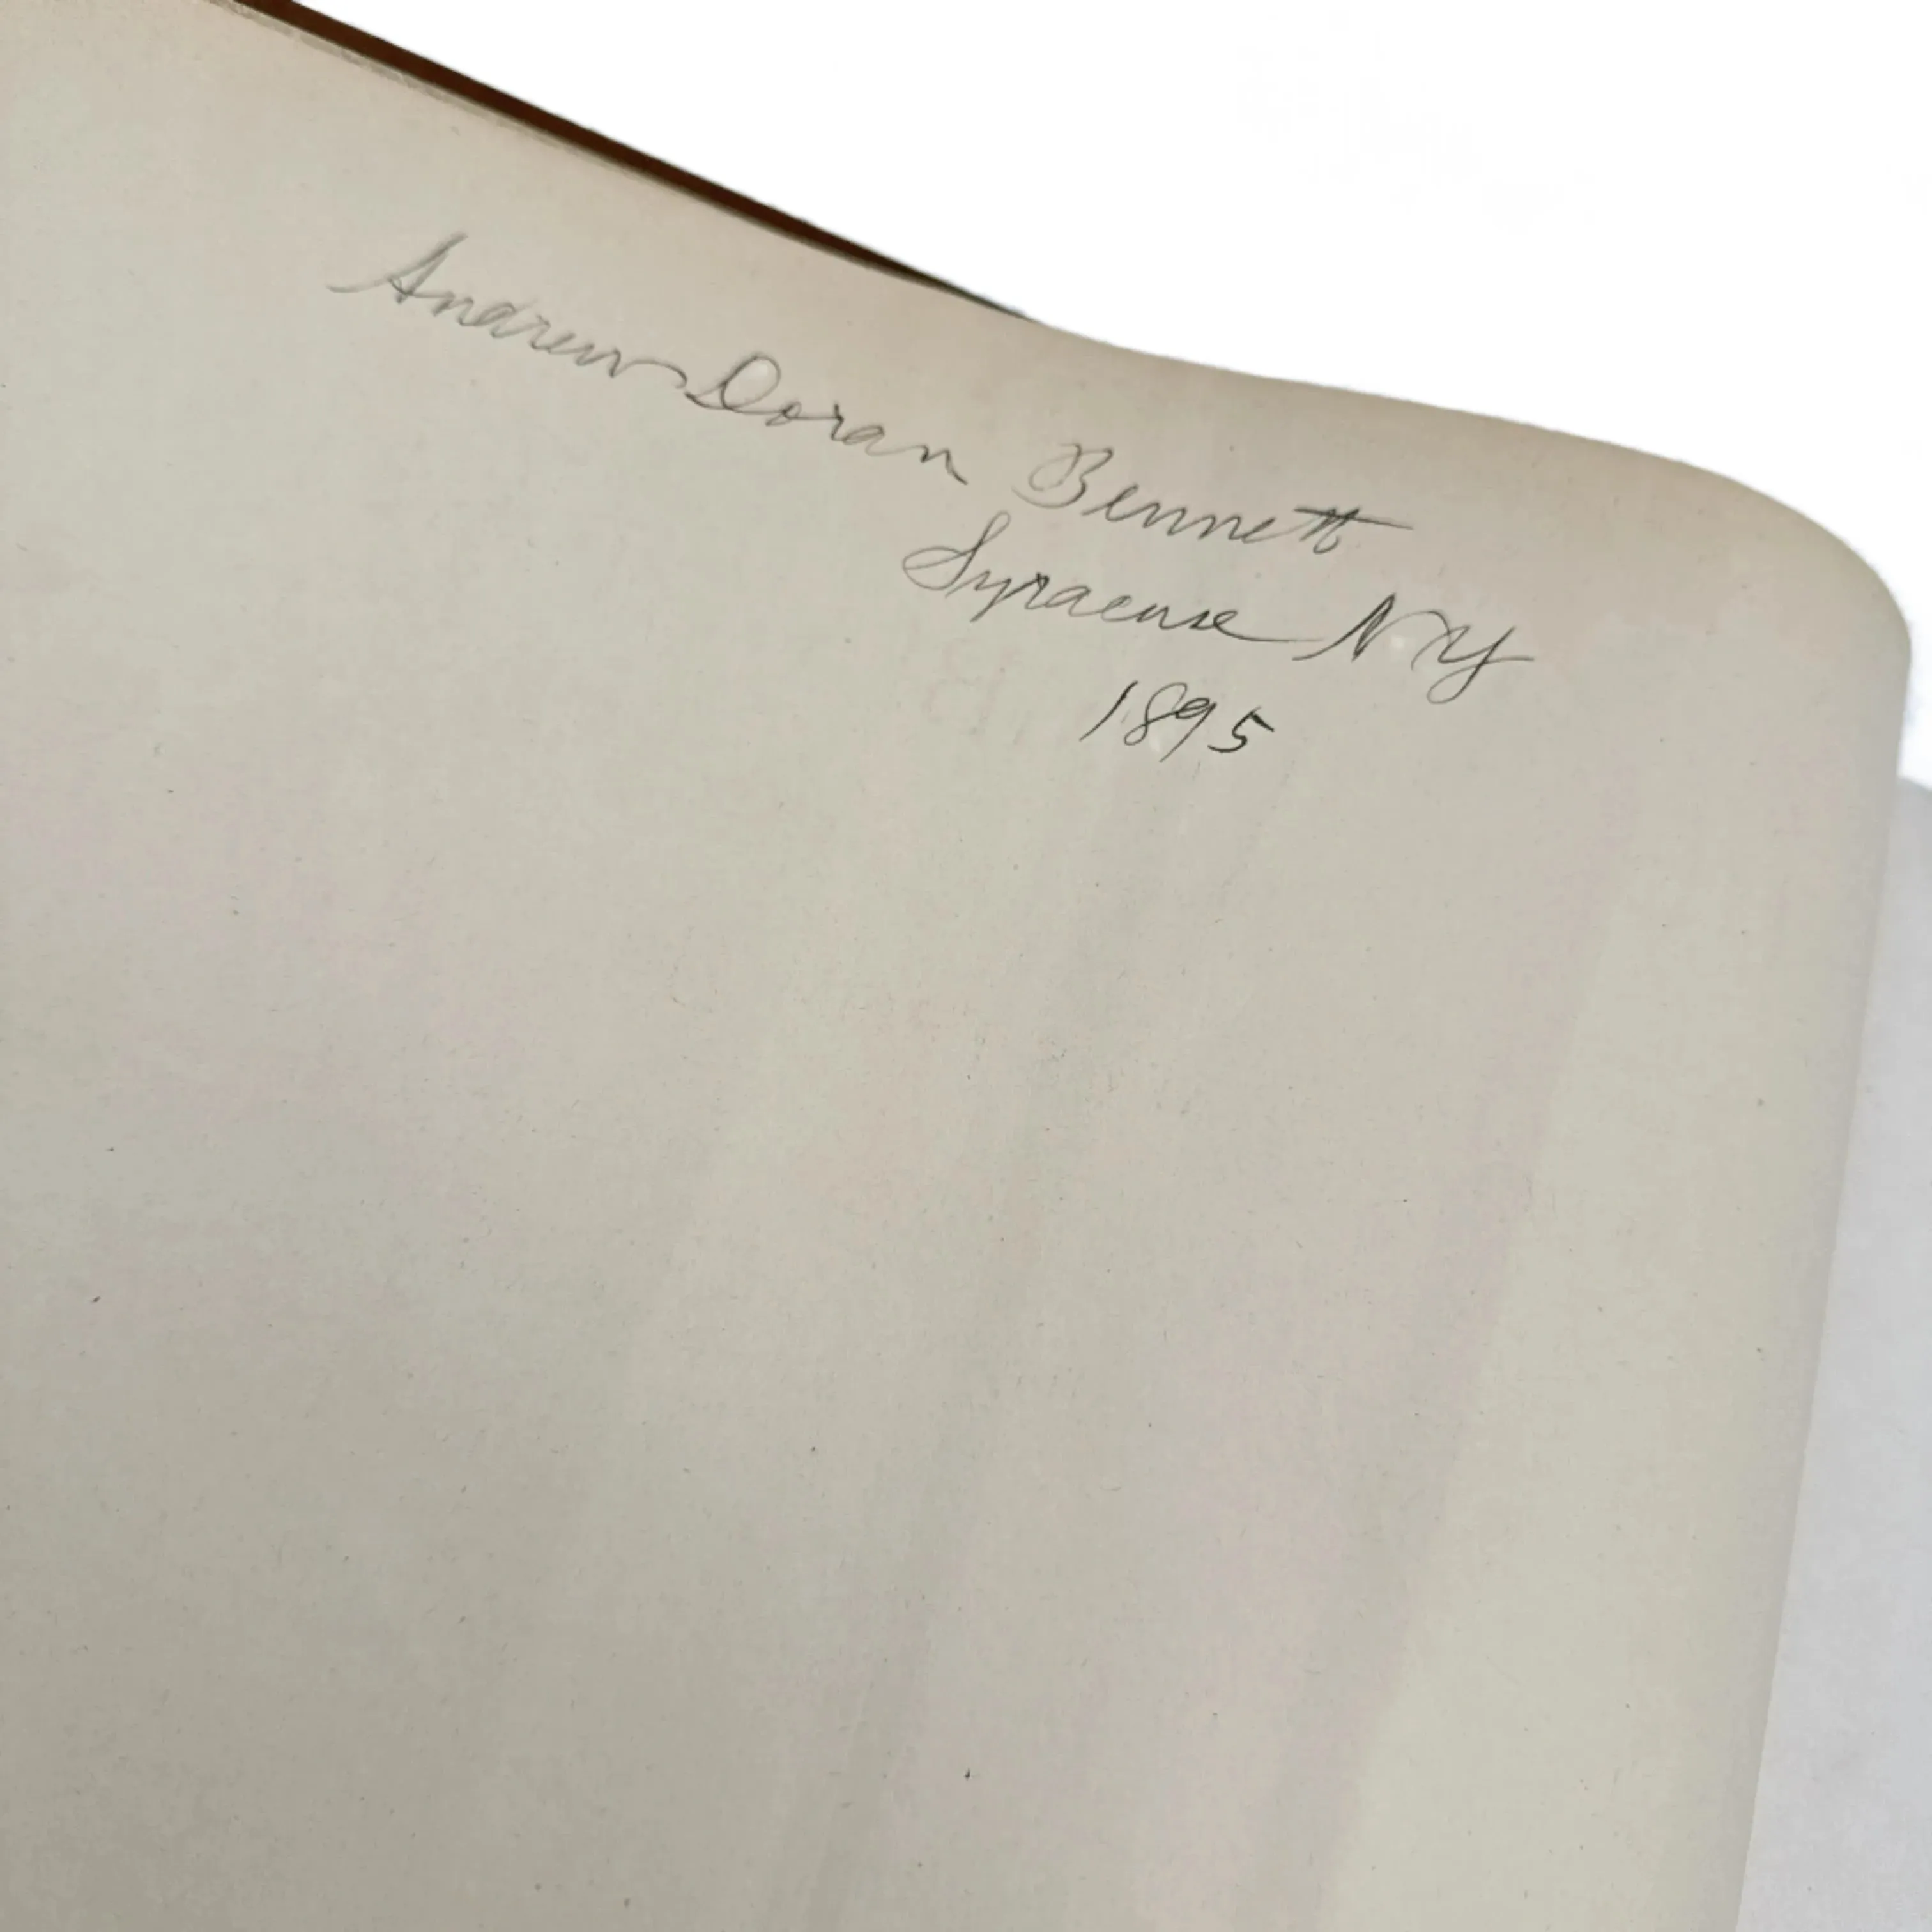 Andrew Doran Bennett
Syracuse NY
1895